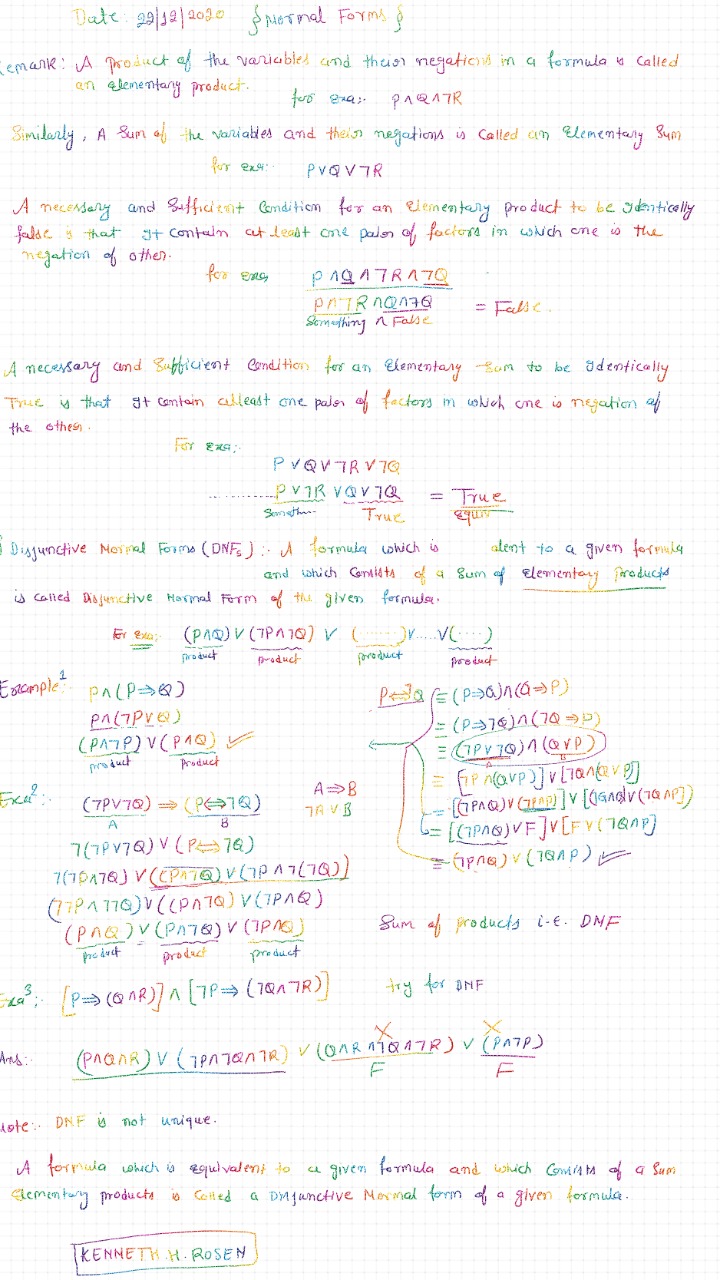 Date: 29/12/2020 {Normal Forms}
emark: A product of the variables and their negations in a formula is called
an elementary product.
for exa:- P∧Q∧¬R
Similarly, A Sum of the variables and their negations is called an Elementary Sum
for exa:- P∨Q∨¬R
A necessary and Sufficient Condition for an Elementary product to be Identically
false is that It contain at least one pair of factors in which one is the
negation of other.
for exa, P∧Q∧¬R∧¬Q
P∧¬R∧Q∧¬Q = False.
Something ∧ False
A necessary and Sufficient Condition for an Elementary Sum to be Identically
True is that It contain atleast one pair of factors in which one is negation of
the other.
For exa:-
P∨Q∨¬R∨¬Q
P∨¬R∨Q∨¬Q = True
Someth... True equiv
Disjunctive Normal Forms (DNFs):- A formula which is alent to a given formula
and which Consists of a Sum of Elementary Products
is called Disjunctive Normal Form of the given formula.
For exa:- (P∧Q)∨(¬P∧¬Q)∨(......)∨.....∨(.....)
product product product product
Example1:- P∧(P⇒Q)
P∧(¬P∨Q)
(P∧¬P)∨(P∧Q) ✓
product product
P⇔¬Q ≡(P⇒Q)∧(Q⇒P)
≡(P⇒¬Q)∧(¬Q⇒P)
≡(¬P∨¬Q)∧(Q∨P)
A B
≡[¬P∧(Q∨P)]∨[¬Q∧(Q∨P)]
≡[(¬P∧Q)∨(¬P∧P)]∨[(¬Q∧Q)∨(¬Q∧P)]
≡[(¬P∧Q)∨F]∨[F∨(¬Q∧P]
≡(¬P∧Q)∨(¬Q∧P) ✓
Exa2:- (¬P∨¬Q)⇒(P⇔¬Q) A⇒B
A B ¬A∨B
¬(¬P∨¬Q)∨(P⇔¬Q)
¬(¬P∧¬Q)∨((P∧¬Q)∨(¬P∧¬(¬Q))
(¬¬P∧¬¬Q)∨((P∧¬Q)∨(¬P∧Q)
(P∧Q)∨(P∧¬Q)∨(¬P∧Q) Sum of products i.e. DNF
product product product
Exa3:- [P⇒(Q∧R)]∧[¬P⇒(¬Q∧¬R)] try for DNF
Ans: (P∧Q∧R)∨(¬P∧¬Q∧¬R)∨(Q∧R∧¬Q∧¬R)∨(P∧¬P)
F F
Note:- DNF is not unique.
A formula which is equivalent to a given formula and which Consists of a Sum
Elementary products is Called a Disjunctive Normal form of a given formula.
KENNETH.H.ROSEN